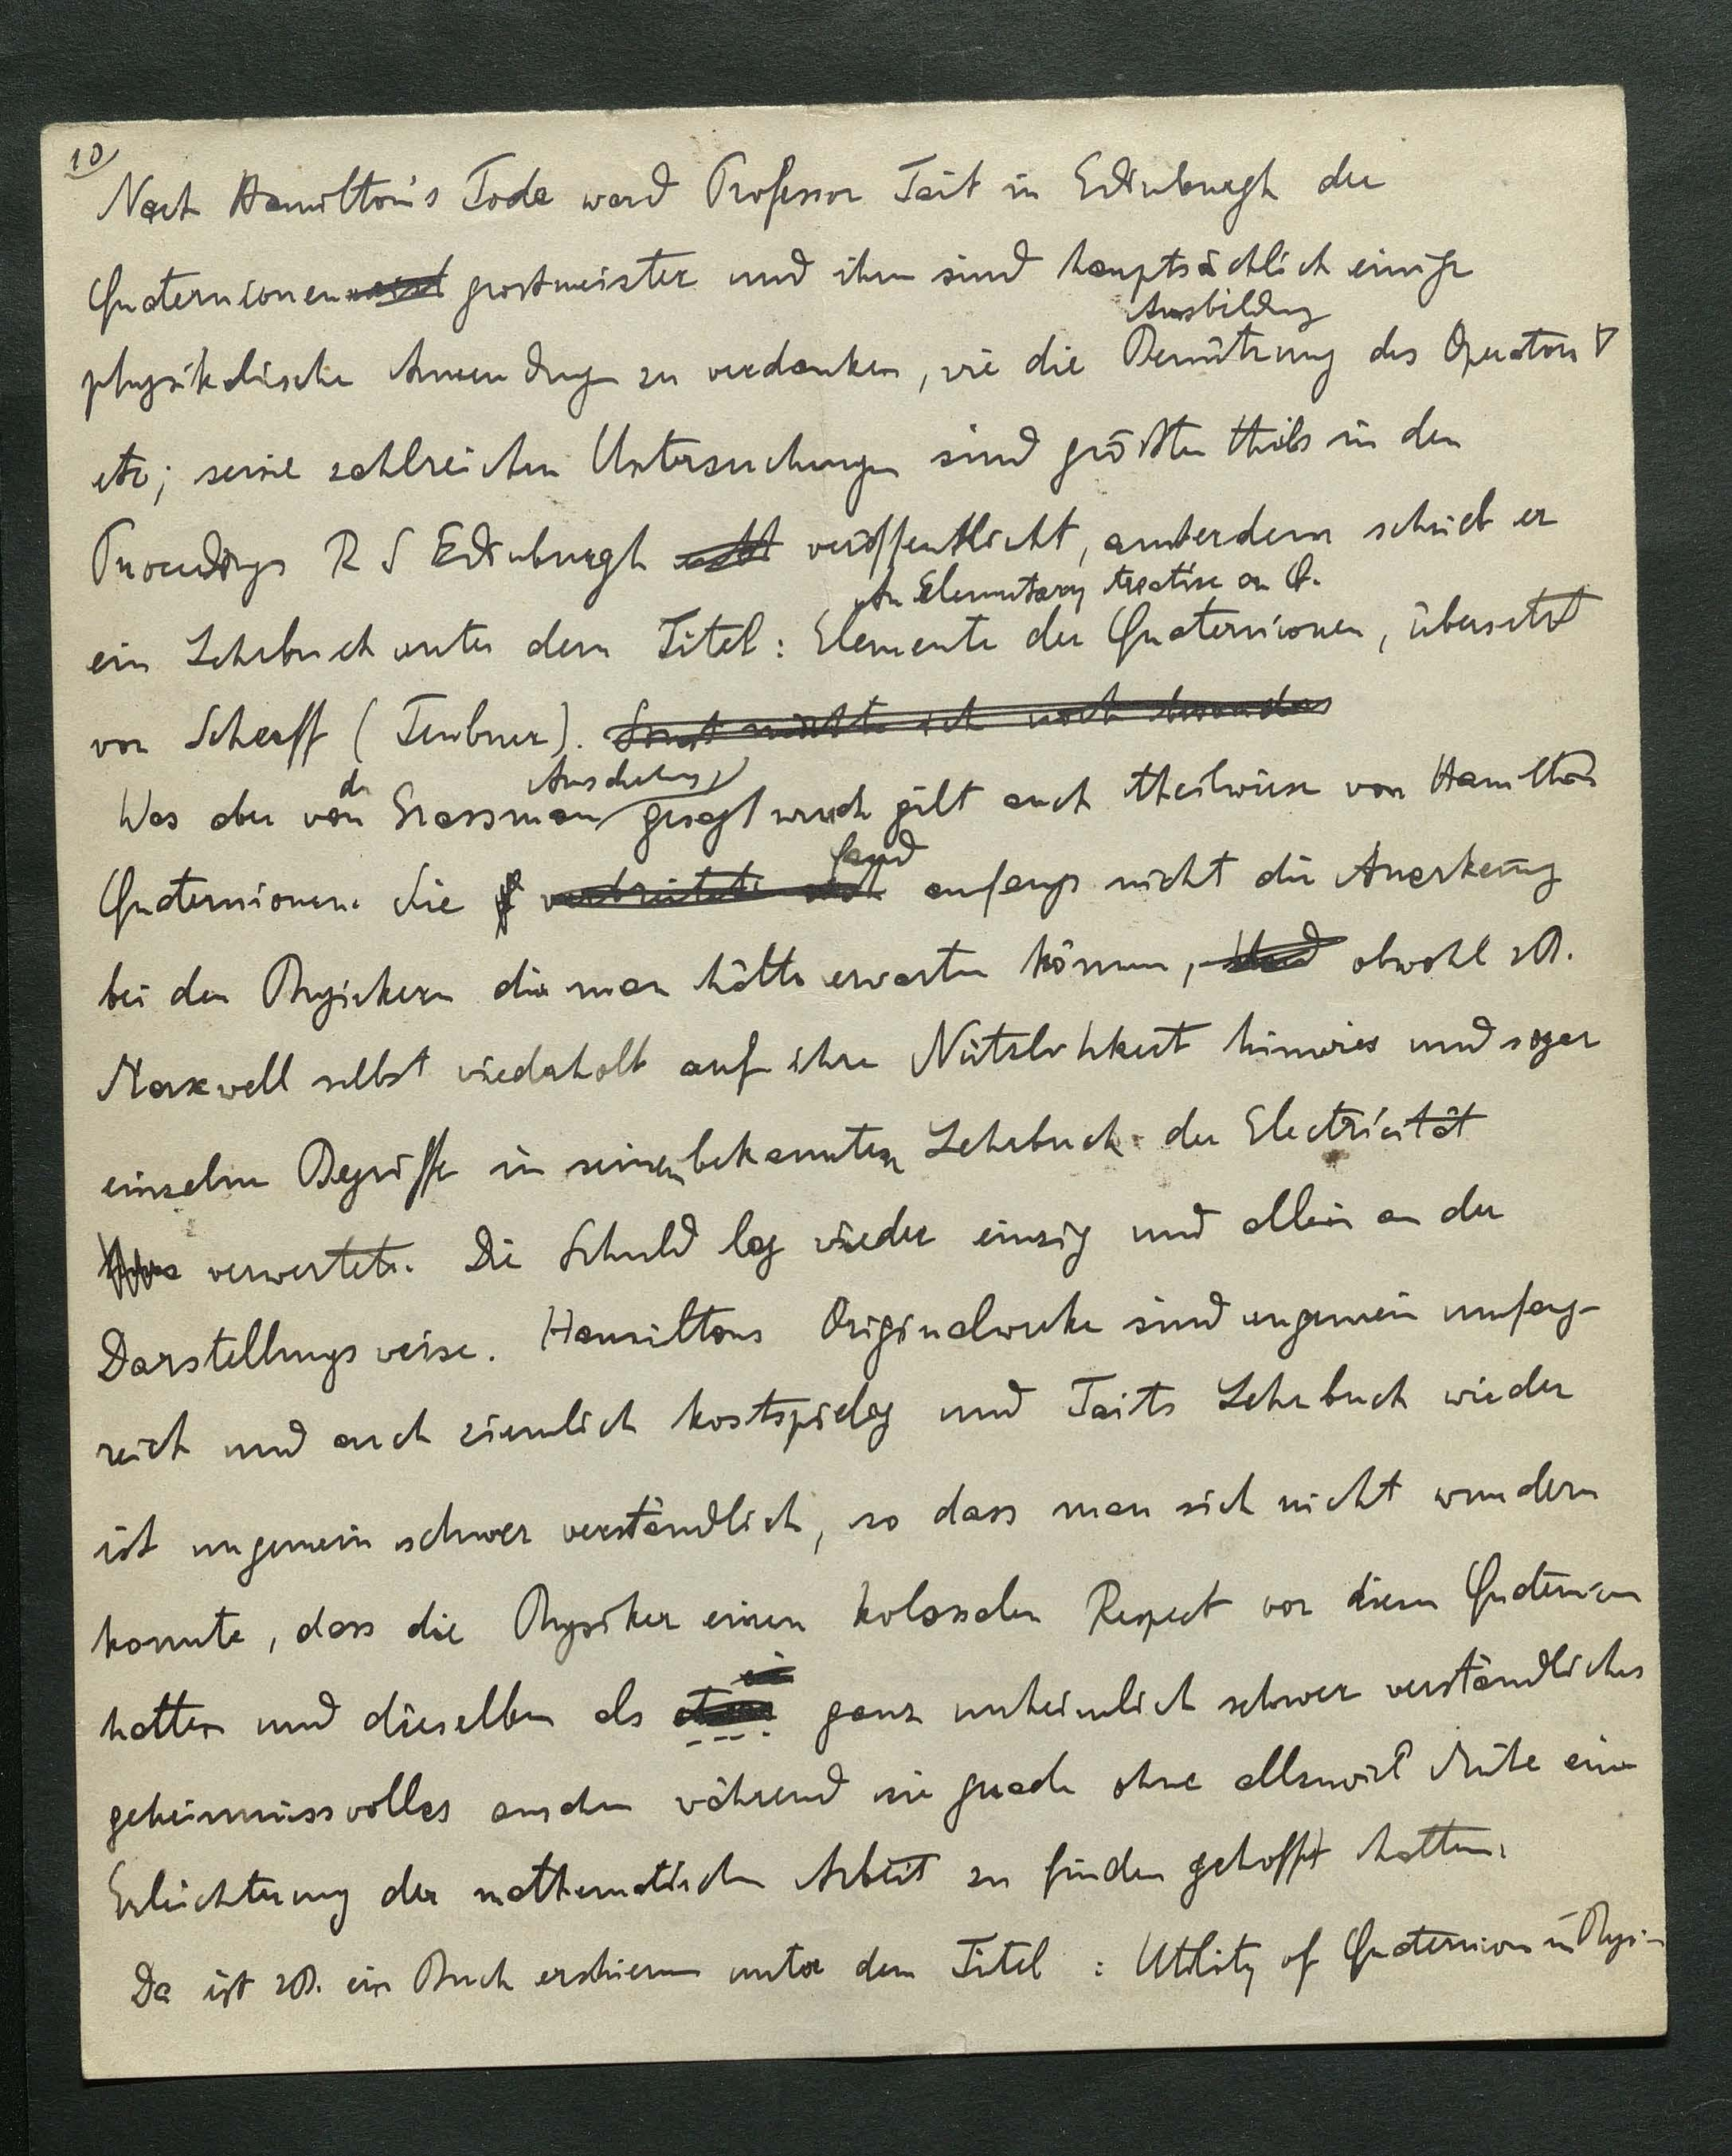 10
Nach Hamilton's Tode ward Professor Tait in Edinburgh der
Quaternionen grossmeister und ihm sind hauptsächlich einige
Ausbildung
physikalische Anwendungen zu verdanken, wie die Benützung des Operators ∇
etc; seine zahlreichen Untersuchungen sind größten theils in den
Proceedings R S Edinburgh veröffentlicht, außerdem schrieb er
An Elementary treatise on Q.
ein Lehrbuch unter dem Titel: Elemente der Quaternionen, übersetzt
von Scherff (Teubner). Sonst möchte ich noch besonders
der Ausdehnung
Was aber von Grassman gesagt wurde gilt auch theilweise von Hamiltons
fand
Quaternionen. Sie verbreitete sich anfangs nicht die Anerkennung
bei den Physickern die man hätte erwarten können, obwohl zB.
Maxwell selbst wiederholt auf ihre Nützlichkeit hinwies und sogar
einzelne Begriffe in seinen bekannten Lehrbuch der Electricität
verwertete. Die Schuld lag wieder einzig und allein an der
Darstellungsweise. Hamiltons Originalwerke sind ungemein umfang-
reich und auch ziemlich kostspielig und Taits Lehrbuch wieder
ist ungemein schwer verständlich, so dass man sich nicht wundern
konnte, dass die Physiker einen kolossalen Respect vor diesen Quaternionen
hatten und dieselben als etwas ganz unheimlich schwer verständliches
geheimnissvolles ansahen während sie gerade ohne allzuviel Mühe eine
Erleichterung der mathematischen Arbeit zu finden gehofft hatten.
Da ist zB. ein Buch erschienen unter dem Titel : Utility of Quaternions in Physi-